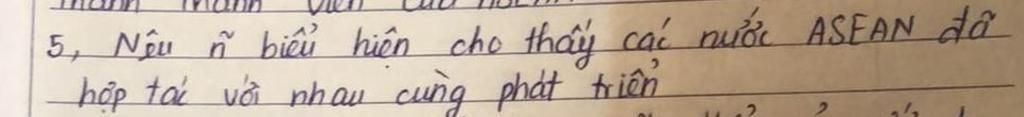 5, Nêu ñ biểu hiện cho thấy các nước ASEAN đã
hợp tác với nhau cùng phát triển